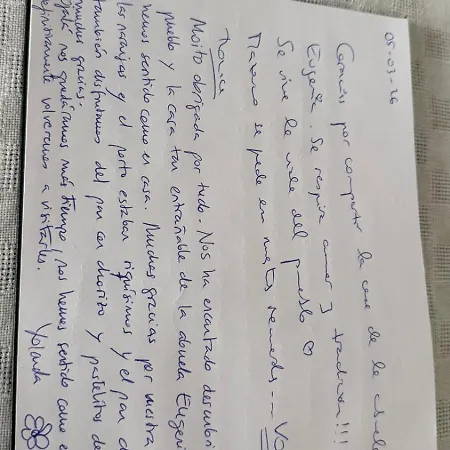 05-03-26
Gracias por compartir la casa de la abuela
Eugenia. Se respira amor y tradición!!!
Se vive la vida del pueblo
se puede en nuestros
Moito obrigada por tudo. Nos ha encantado descubrir
pueblo y la casa tan entrañable de la abuela Eugeni
hemos sentido como en casa. Muchas gracias por vuestra
las naranjas y el porto estaban riquísimos y el pan d
también disfrutamos del pan con chorizo y pastelitos de
muchas gracias.
nos quedáramos más tiempo, nos hemos sentido como e
definitivamente volveremos a visitarles.
Yolanda